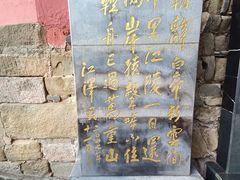 朝辞白帝彩云间
千里江陵一日还
两岸猿声啼不住
轻舟已过万重山
江泽民